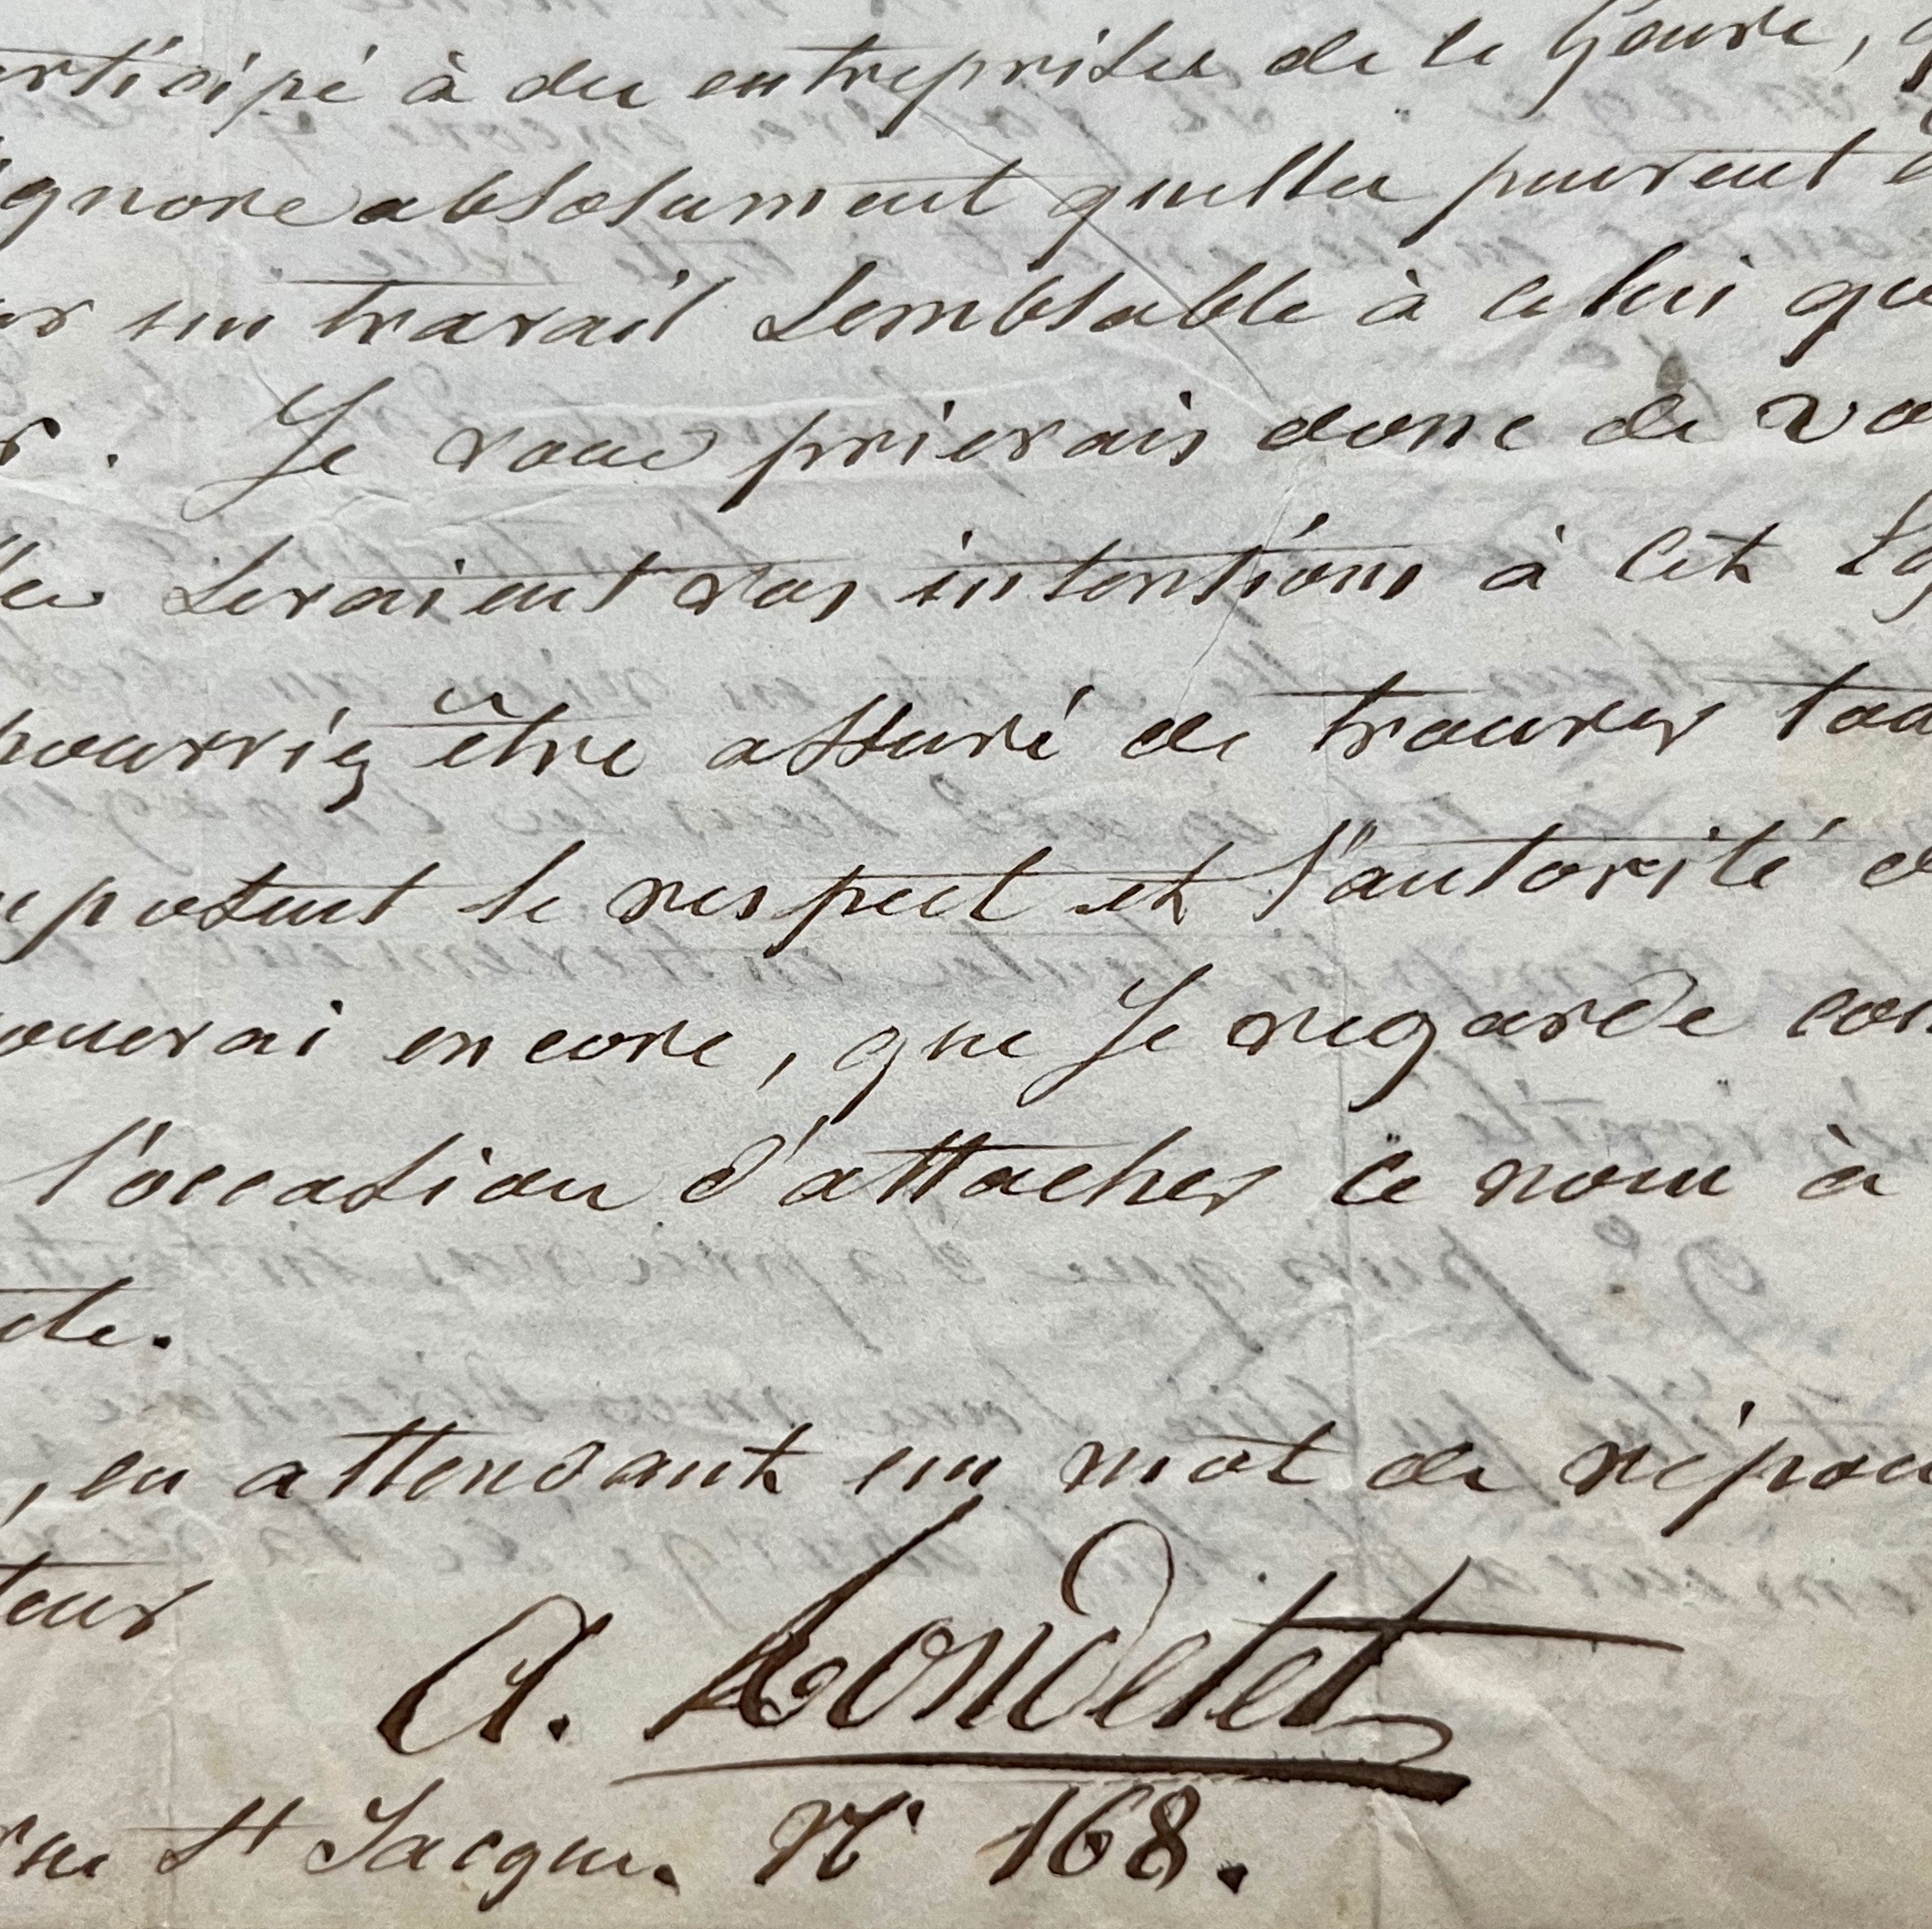 rticipé à des entreprises de ce genre,
gnore absolument quelles peuvent
un travail semblable à celui que
Je vous prierais donc de vo
seraient vos intentions à cet ég
pourriez être assuré de trouver tou
le respect et l'autorité d
ouerai encore, que je regarde co
l'occasion d'attacher ce nom à
, en attendant un mot de répon
teur
A. Londetet
rue St Jacques. N° 168.